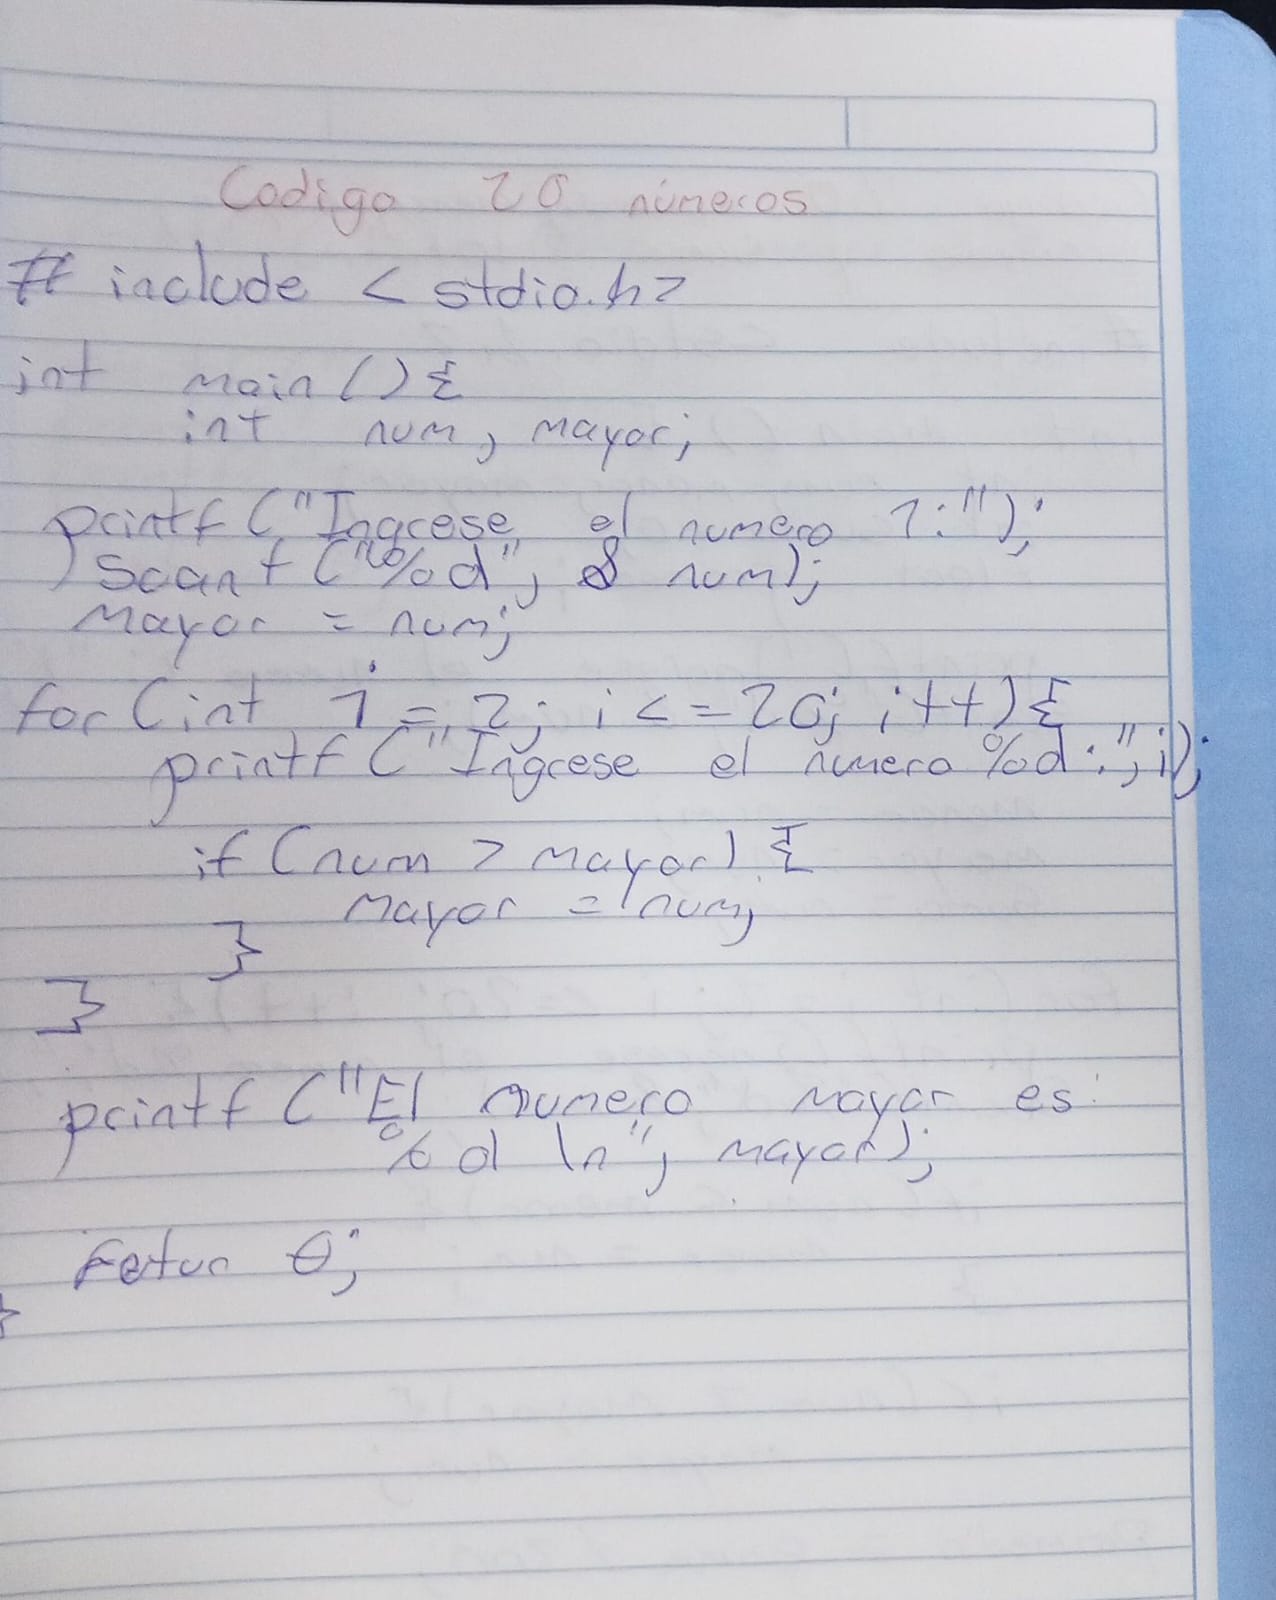 Codigo 20 números
# include < stdio.h>
int main () {
int num, mayor;
printf ("Ingrese el numero 1:");
Scanf ("%d", & num);
Mayor = num;
for (int i = 2; i <= 20; i++) {
printf ("Ingrese el numero %d:", i);
if (num > mayor) {
mayor = num;
}
}
printf ("El numero mayor es:
%d \n", mayor);
retun 0;
}